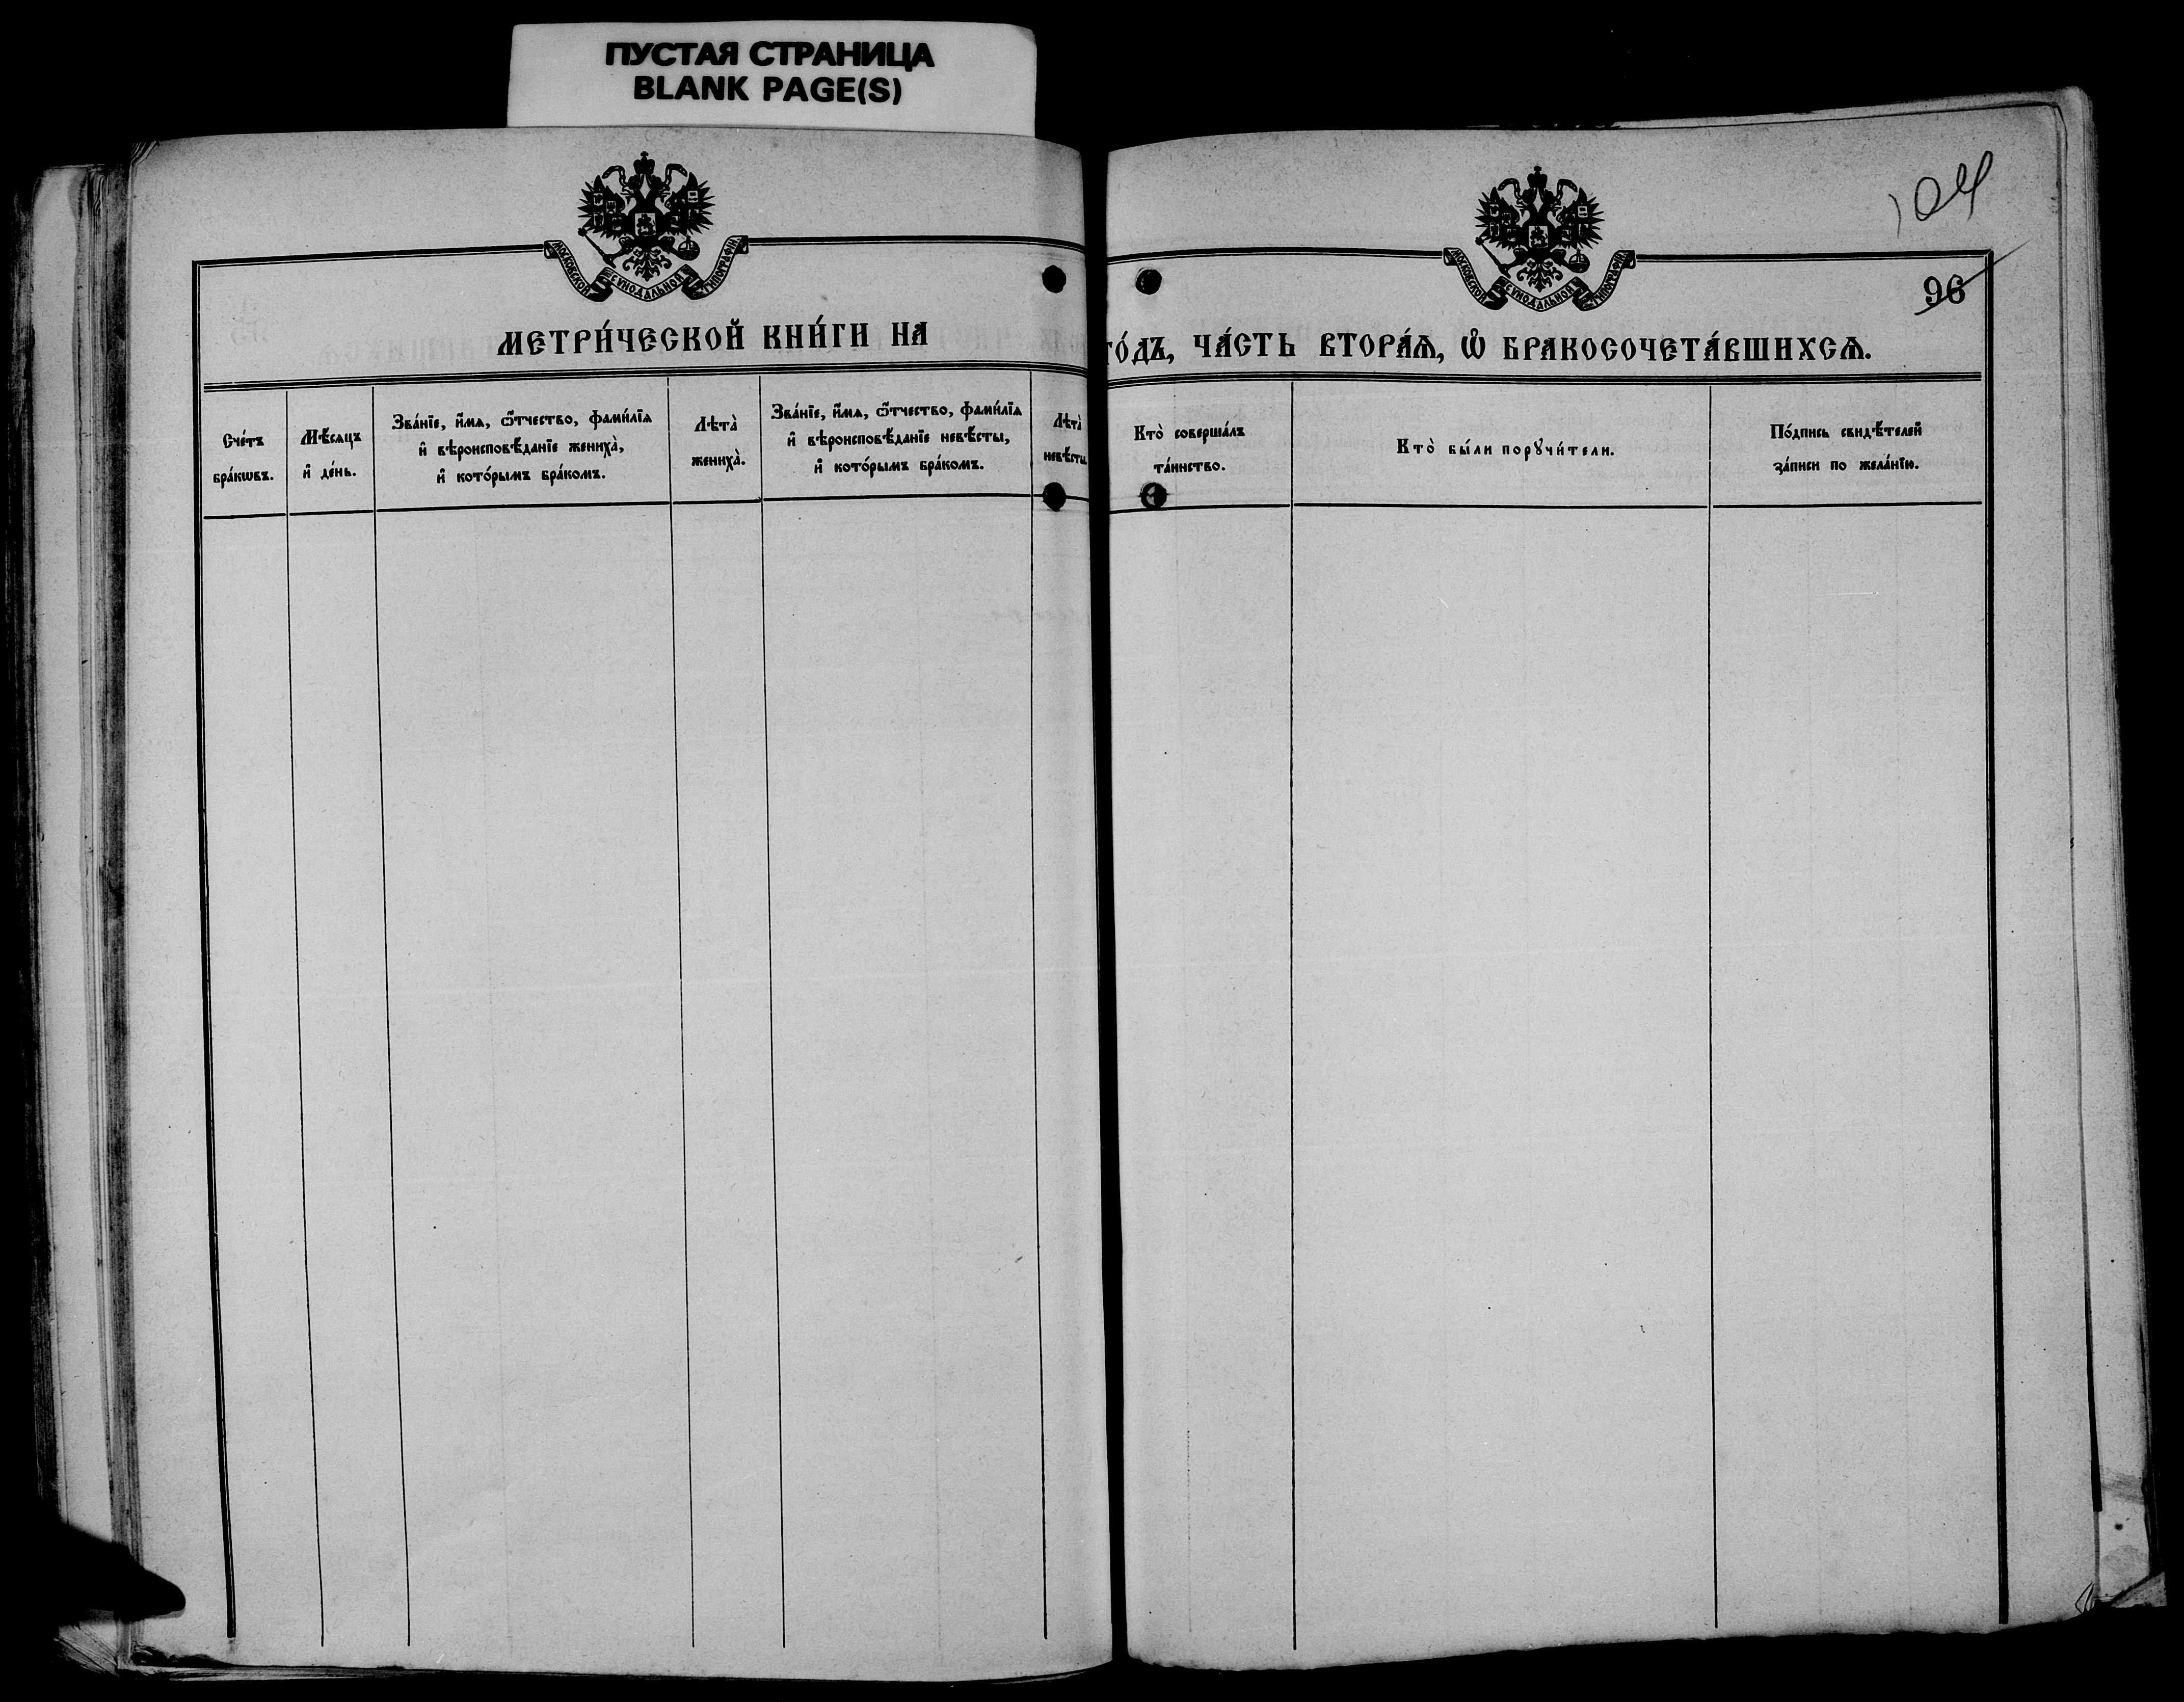 ПУСТАЯ СТРАНИЦА
BLANK PAGE(S)
МОСКОВСКОЙ СѴНОДАЛЬНОЙ ТИПОГРАФІИ
МЕТРИ́ЧЕСКОЙ КНИ́ГИ НА
Сче́тъ
бра́кѡвъ.
Мѣ́сяцъ
и҆ де́нь.
Зва́нїе, и҆́мѧ, ѻ҆́тчество, фами́лїѧ
и҆ вѣроисповѣ́данїе жениха̀,
и҆ кото́рымъ бра́комъ.
Лѣта̀
жениха̀.
Зва́нїе, и҆́мѧ, ѻ҆́тчество, фами́лїѧ
и҆ вѣроисповѣ́данїе невѣ́сты,
и҆ кото́рымъ бра́комъ.
Лѣта̀
невѣ́сты
104
МОСКОВСКОЙ СѴНОДАЛЬНОЙ ТИПОГРАФІИ
96
ГО́ДЪ, ЧА́СТЬ ВТОРА́Ѧ, Ѽ БРАКОСОЧЕТА́ВШИХСѦ.
Кто̀ соверша́лъ
та́инство.
Кто̀ бы́ли порꙋчи́тели.
По́дпись свидѣ́телей
за́писи по жела́нїю.